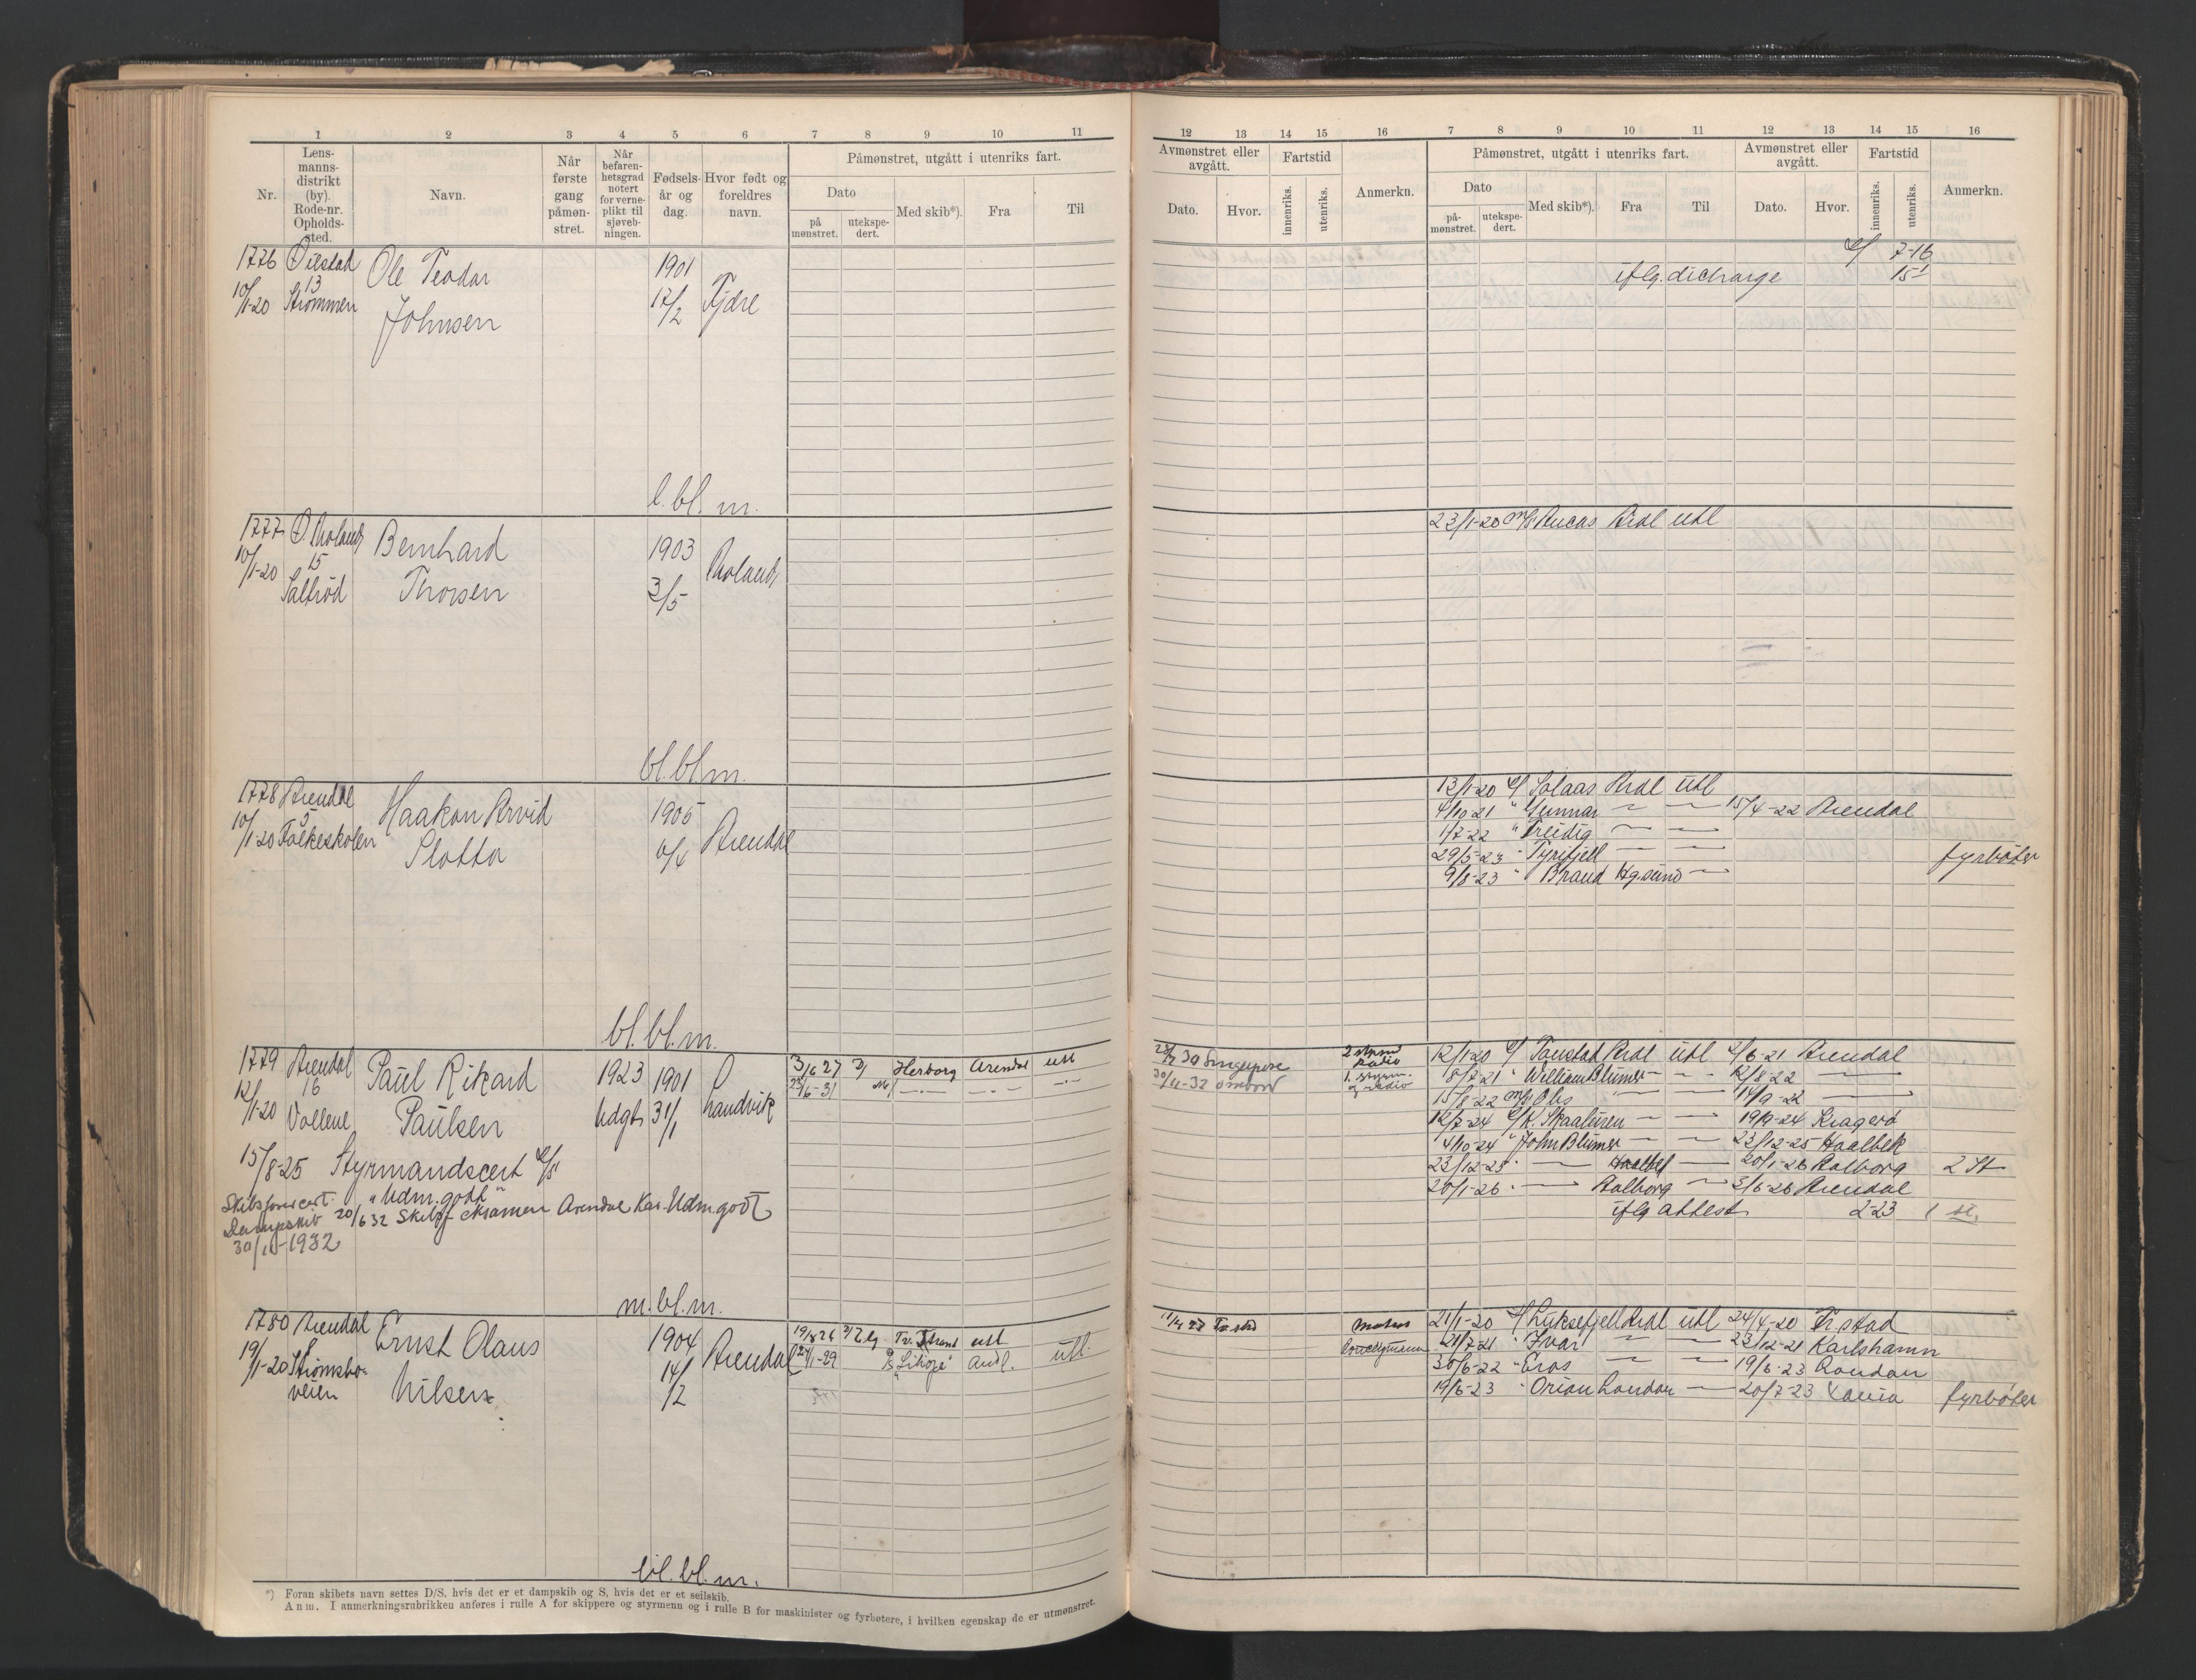 1 2 3 4 5 6 7 8 9 10 11
Nr.
Lens-
manns-
distrikt
(by).
Rode-nr.
Opholds-
sted.
Navn.
Når
første
gang
påmøn-
stret.
Når
befaren-
hetsgrad
notert
for verne-
plikt til
sjøveb-
ningen.
Fødsels-
år og
dag.
Hvor født og
foreldres
navn.
Påmønstret, utgått i utenriks fart.
Dato
på
mønstret.
utekspe-
dert.
Med skib*).
Fra
Til
1776 Øiestad
13
10/1-20 Strømmen
Ole Teodor
Johnsen
1901
17/2
Fjære
l. bl. m.
1777
10/1-20
15
Saltrød
Bernhard
Thorsen
1903
3/5
bl. bl. m.
1778 Arendal
5
10/1-20 Folkeskolen
Haakon Arvid
Slotta
1905
Arendal
bl. bl. m.
1779 Arendal
16
12/1-20
Vollene
Paul Rikard
Paulsen
1923
Udgt.
1901
31/1
Landvik
3/6 27 Herborg Arendal utl
15/8-25 Styrmandscert
"Udm. godt"
Skibsførercert.
Dampskib
30/11-1932
20/6 32 Skibsf. eksamen Arendal Kar. Udm. godt
m. bl. m.
1780 Arendal
19/1-20 Strømsbo-
veien
Ernst Olaus
Nilsen
1904
14/12
Arendal
utl
utl.
bl. bl. m.
*) Foran skibets navn settes D/S, hvis det er et dampskib og S, hvis det er et seilskib.
Anm. I anmerkningsrubrikken anføres i rulle A for skippere og styrmenn og i rulle B for maskinister og fyrbøtere, i hvilken egenskap de er utmønstret.
12 13 14 15 16 7 8 9 10 11 12 13 14 15 16
Avmønstret eller
avgått.
Dato.
Hvor.
Fartstid
innenriks.
utenriks.
Anmerkn.
Påmønstret, utgått i utenriks fart.
Dato
på-
mønstret.
utekspe-
dert.
Med skib*).
Fra
Til
Avmønstret eller
avgått.
Dato.
Hvor.
Fartstid
innenriks.
utenriks.
Anmerkn.
7-16
iflg. dicharge
23/1-20 Ardl utl
12/1-20 Solaas Ardl utl
4/10-21 " Gunnar — — 15/4-22 Arendal
1/7-22 " Treidig — —
29/5-23 " Tyrifjell — — fyrbøter
9/8-23 " Brand Hgsund —
Singapore
2 styrm
Radio
12/1-20 Ardl utl 2/6-21 Arendal
8/7-21 " William Blumer — — 12/8-22 —
15/8-22
12/7-24 K. Skaaluren — — 19/9-24 Kragerø
4/10-24 " John Blumer — — 23/12-25 Haalbek
23/12-25 " — — 20/1-26 Aalborg 2 St
20/1-26 " — Aalborg — 3/6-26 Arendal
iflg attest 2-23 1 st.
21/1-20 Luksefjell Ardl utl 24/4-20
21/7-21 " Ivar — — 23/12-21 Karlshamn
30/6-22 " Eros — — 19/6-23 London
19/6-23 " Orion London — 20/7-23 fyrbøter